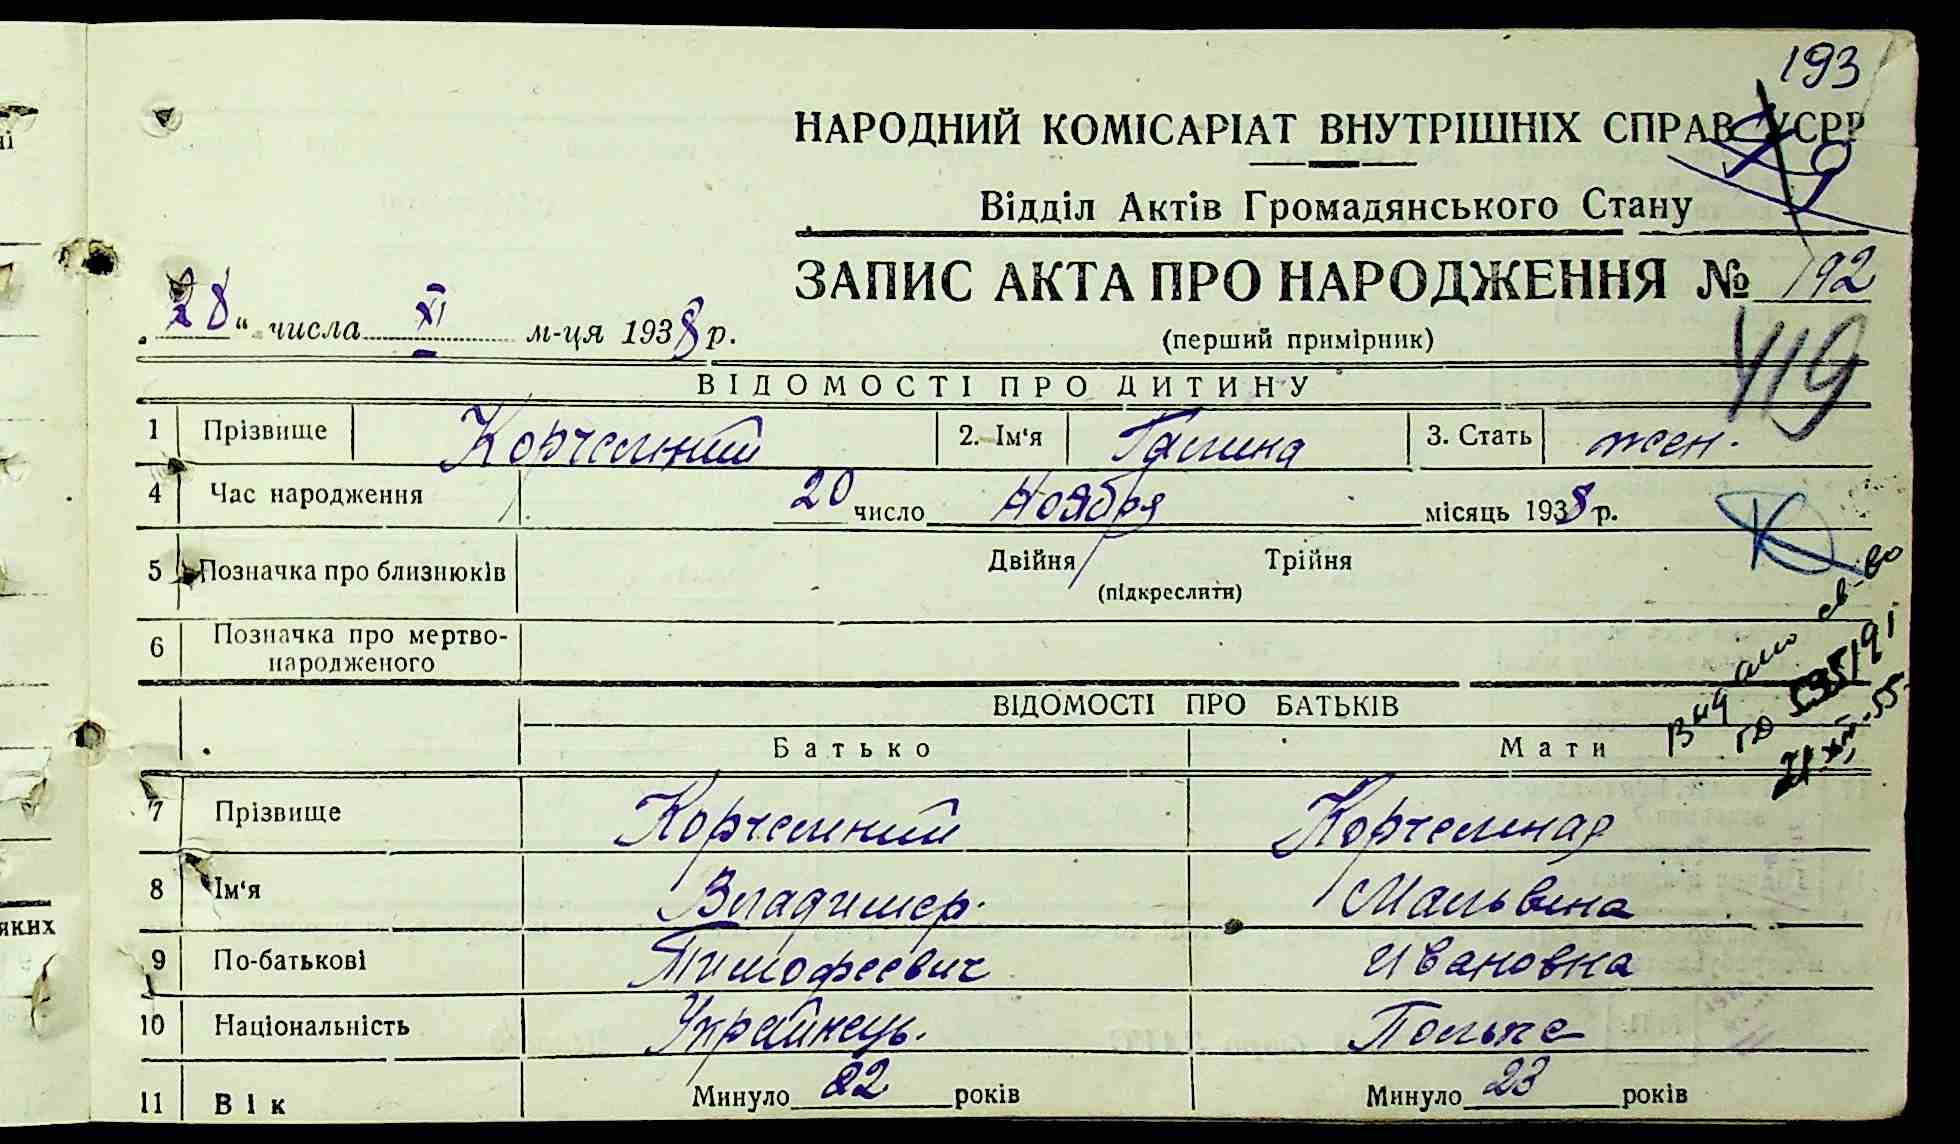 193
НАРОДНИЙ КОМІСАРІАТ ВНУТРІШНІХ СПРАВ УСРР
Відділ Актів Громадянського Стану
ЗАПИС АКТА ПРО НАРОДЖЕННЯ № 192
„28“ числа XI м-ця 1938 р.
(перший примірник)
419
ВІДОМОСТІ ПРО ДИТИНУ
1 Прізвище Корчемний 2. Ім‘я Галина 3. Стать жен.
4 Час народження 20 число Ноября місяць 1938 р.
5 Позначка про близнюків Двійня Трійня
(підкреслити)
6 Позначка про мертво-
народженого
Видано св-во
535191
21.XII.55
ВІДОМОСТІ ПРО БАТЬКІВ
Батько Мати
7 Прізвище Корчемний Корчемная
8 Ім‘я Владимер. Мальвина
9 По-батькові Тимофеевич Ивановна
10 Національність Українець. Полька
11 Вік Минуло 22 років Минуло 23 років
яких